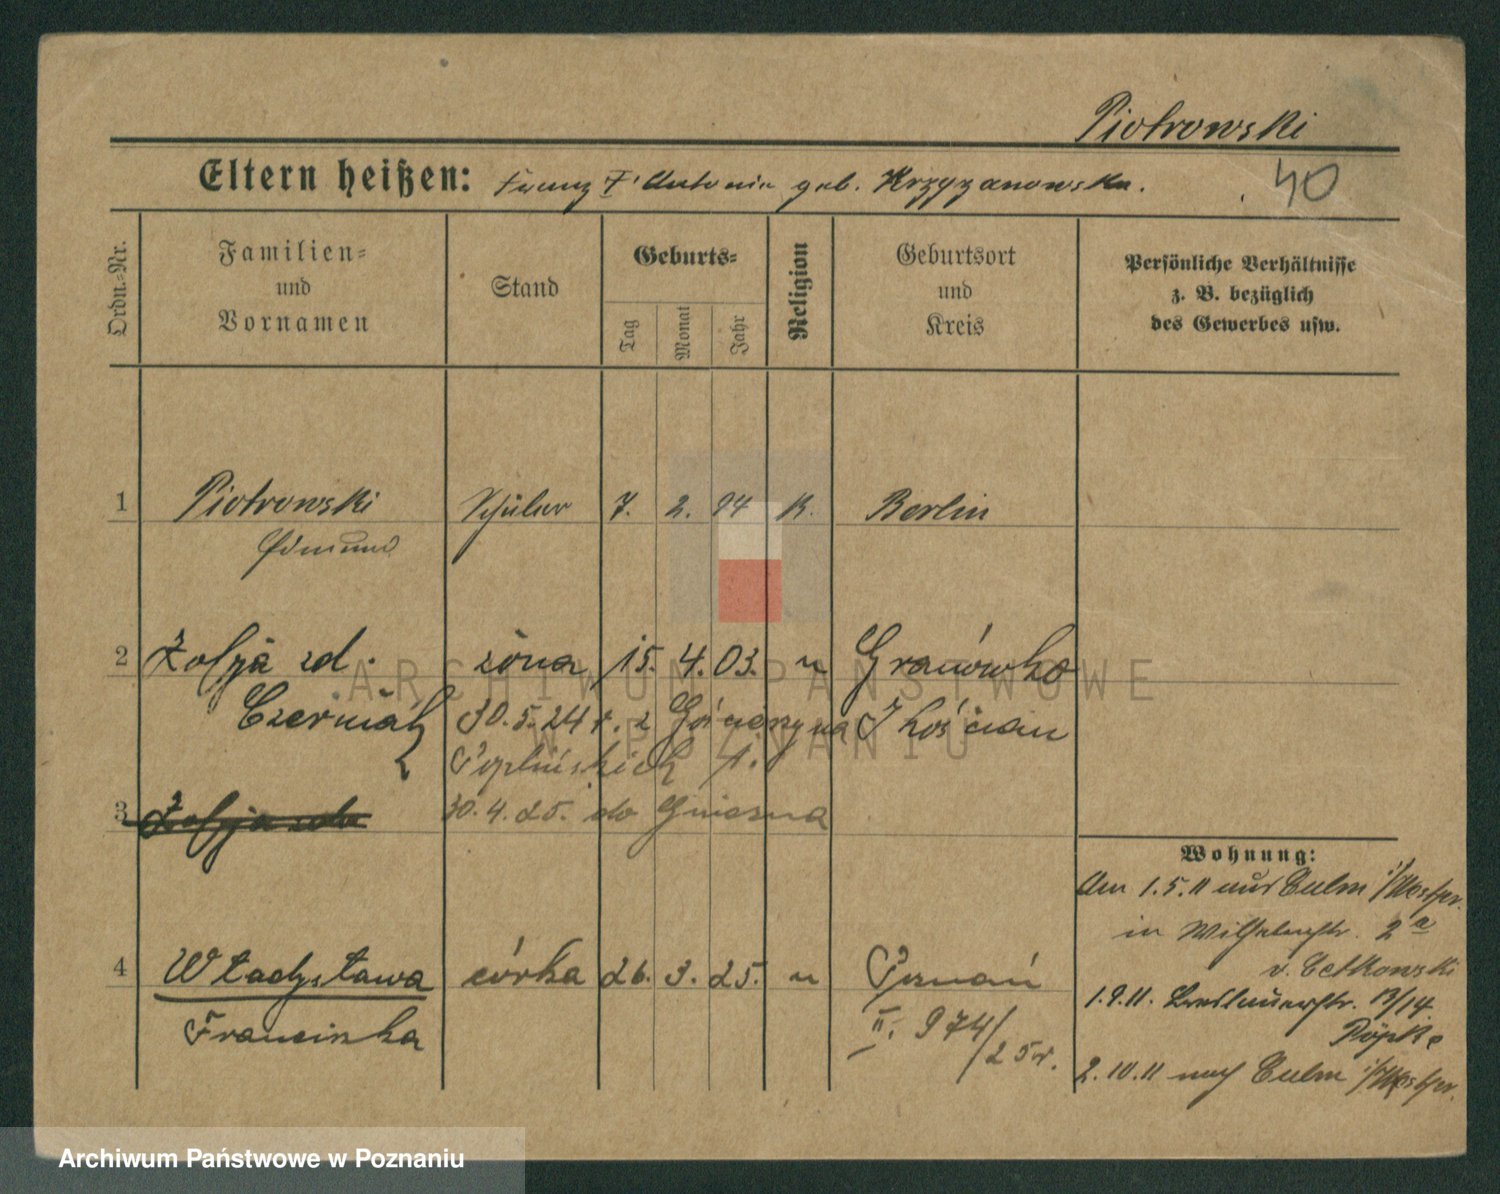 Piotrowski
Eltern heißen: Franz Antonie geb. Krzyzanowska.
40
Ordn.=Nr.
Familien= und Vornamen
Stand
Geburts=
Tag
Monat
Jahr
Religion
Geburtsort und Kreis
Persönliche Verhältnisse
z. B. bezüglich
des Gewerbes usw.
1 Piotrowski Schüler 7. 2. 94 K. Berlin
Edmund
2 Zofja zd. żona 15. 4. 03. Granówko
Czerniak 30.5.24 r. z Kościan
30.4.25. do Gniezna
3 Zofja
4 Władysława córka 26. 3. 25. Poznań
Franciszka II. 974/25 r.
Wohnung:
Am 1.5.11 aus Culm i/Westpr.
in Wilhelmstr. 2a
v. Cetkowski
1.9.11. Breslauerstr. 13/14
Pöpke
2.10.11 nach Culm i/Westpr.
ARCHIWUM PAŃSTWOWE
W POZNANIU
Archiwum Państwowe w Poznaniu